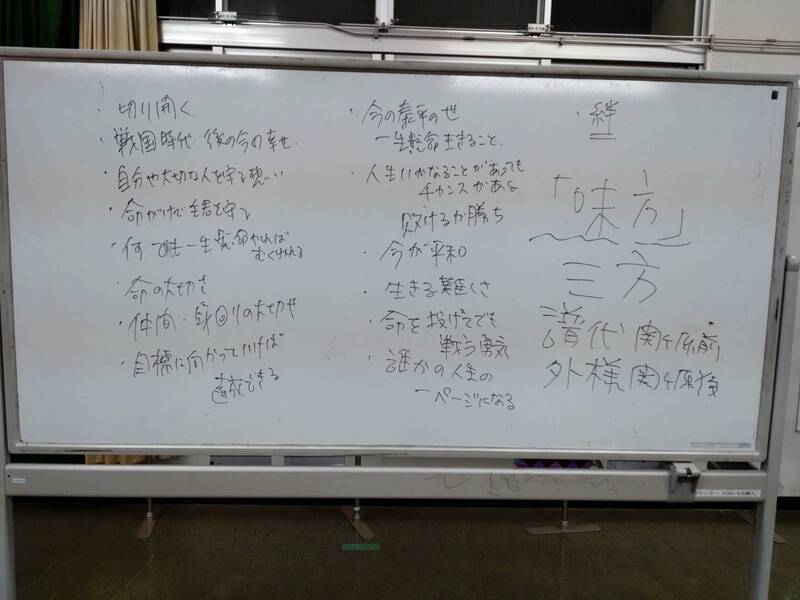 ・切り開く
・戦国時代・後の今の幸せ.
・自分や大切な人を守る想い
・命がけで主君を守る
・何でも一生懸命やれば
むくわれる
・命の大切さ
・仲間・身回りの大切さ
・目標に向かっていけば
達成できる
・今の泰平の世
一生懸命生きること.
・人生いかなることがあっても
チャンスがある
敗けるが勝ち
・今が平和
・生きる難しさ
・命を投げてでも
戦う勇気
・誰かの人生の
一ページになる
・絆
「味方」
三方
譜代 関ヶ原前
外様 関ヶ原後